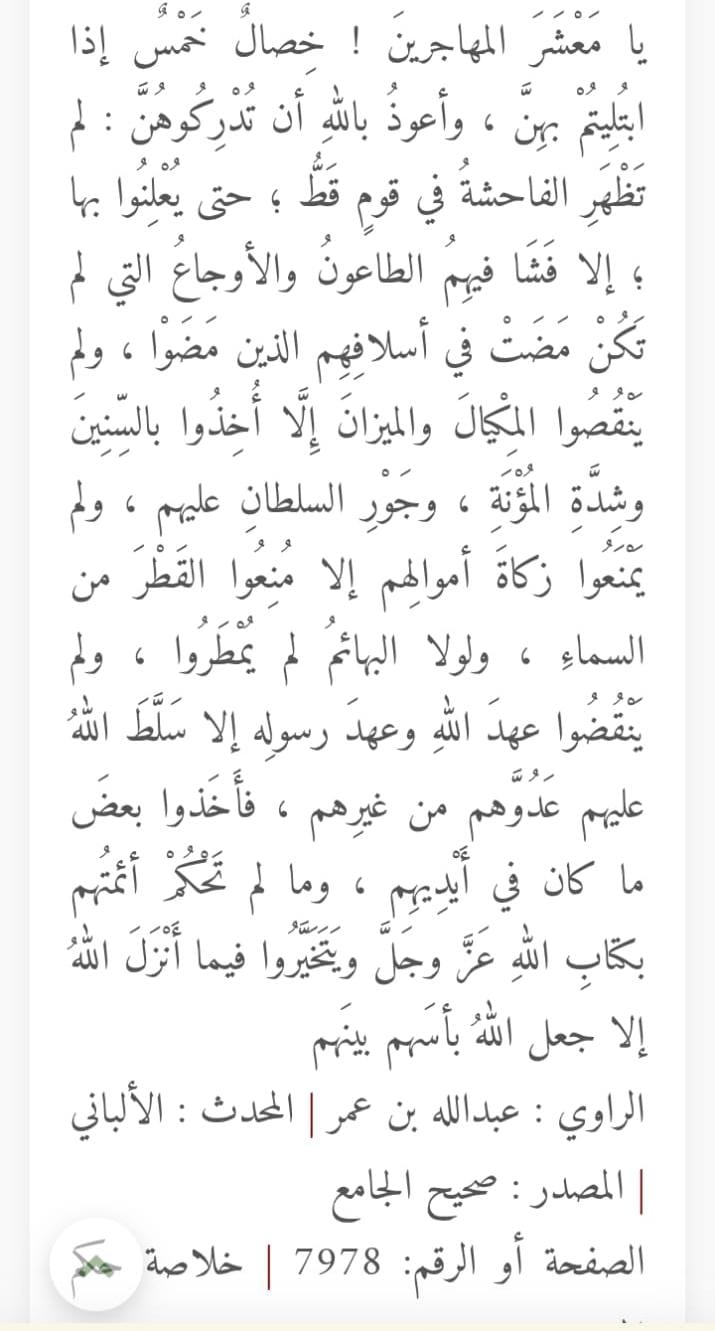 يا مَعْشَرَ المهاجرينَ ! خِصالٌ خَمْسٌ إذا
ابتُلِيتُمْ بهِنَّ ، وأعوذُ باللهِ أن تُدْرِكُوهُنَّ : لم
تَظْهَرِ الفاحشةُ في قومٍ قَطُّ ؛ حتى يُعْلِنُوا بها
؛ إلا فَشَا فيهِمُ الطاعونُ والأوجاعُ التي لم
تَكُنْ مَضَتْ في أسلافِهِم الذين مَضَوْا ، ولم
يَنْقُصُوا المِكْيالَ والميزانَ إِلَّا أُخِذُوا بالسِّنِينَ
وشِدَّةِ المُؤْنَةِ ، وجَوْرِ السلطانِ عليهم ، ولم
يَمْنَعُوا زكاةَ أموالِهم إلا مُنِعُوا القَطْرَ من
السماءِ ، ولولا البهائمُ لم يُمْطَرُوا ، ولم
يَنْقُضُوا عهدَ اللهِ وعهدَ رسولِه إلا سَلَّطَ اللهُ
عليهم عَدُوَّهم من غيرِهم ، فأَخَذوا بعضَ
ما كان في أَيْدِيهِم ، وما لم تَحْكُمْ أئمَّتُهم
بكتابِ اللهِ عَزَّ وجَلَّ ويَتَخَيَّرُوا فيما أَنْزَلَ اللهُ
إلا جعل اللهُ بأسَهم بينَهم
الراوي : عبدالله بن عمر | المحدث : الألباني
| المصدر : صحيح الجامع
الصفحة أو الرقم: 7978 | خلاصة